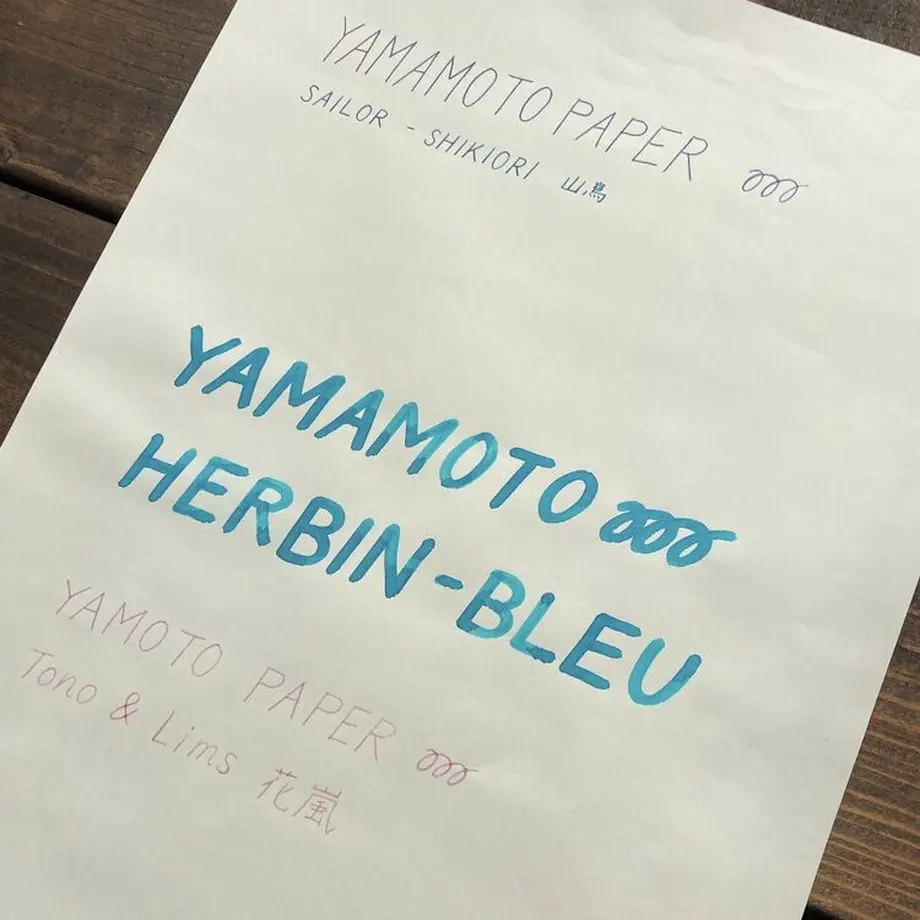 YAMAMOTO PAPER
SAILOR - SHIKIORI 山鳥
YAMAMOTO
HERBIN-BLEU
YAMOTO PAPER
Tono & Lims 花嵐